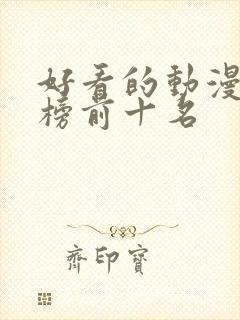 好看的動漫
榜前十名
齊印寶